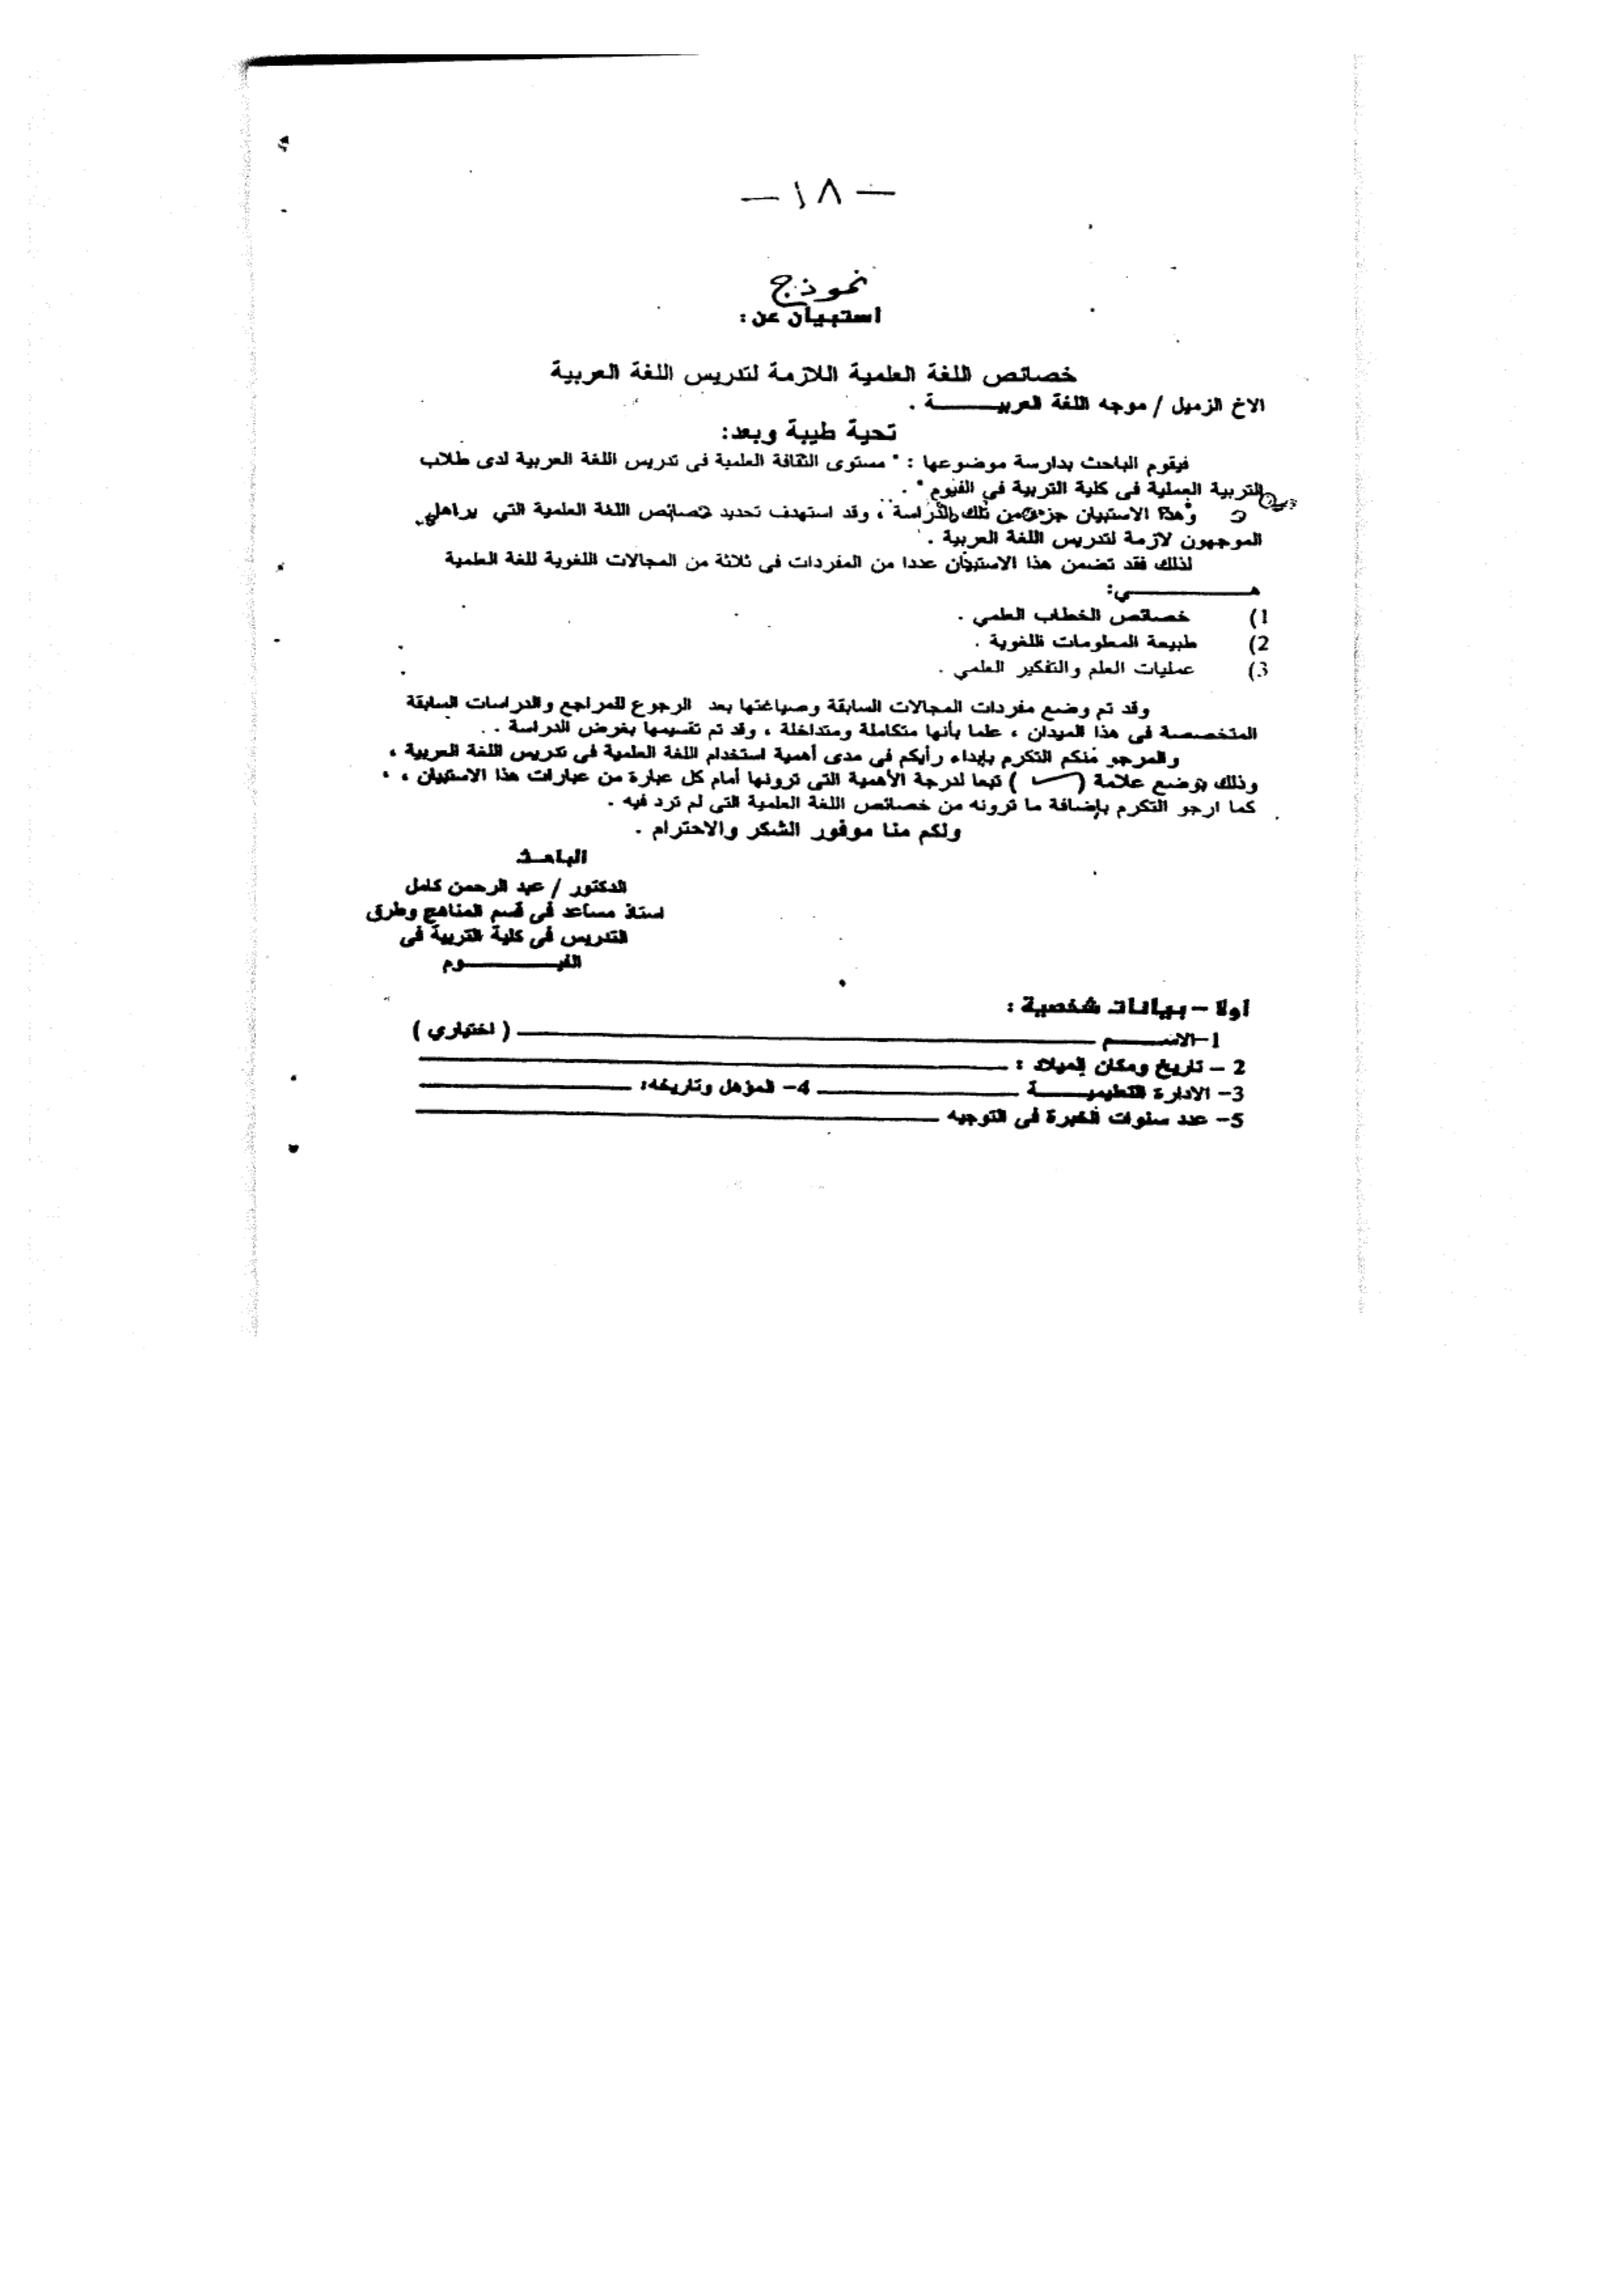 — ١٨ —
نموذج
استبيان عن :
خصائص اللغة العلمية اللازمة لتدريس اللغة العربية
الاخ الزميل / موجه اللغة العربيـــــــة .
تحية طيبة وبعد:
فيقوم الباحث بدارسة موضوعها : " مستوى الثقافة العلمية فى تدريس اللغة العربية لدى طلاب
التربية العملية فى كلية التربية فى الفيوم " .
وهذا الاستبيان جزء من تلك الدراسة ، وقد استهدف تحديد خصائص اللغة العلمية التي يراها
الموجهون لازمة لتدريس اللغة العربية .
لذلك فقد تضمن هذا الاستبيان عددا من المفردات فى ثلاثة من المجالات اللغوية للغة العلمية
هـــــــــــــي:
1) خصائص الخطاب العلمي .
2) طبيعة المعلومات اللغوية .
3) عمليات العلم والتفكير العلمي .
وقد تم وضع مفردات المجالات السابقة وصياغتها بعد الرجوع للمراجع والدراسات السابقة
المتخصصة فى هذا الميدان ، علما بأنها متكاملة ومتداخلة ، وقد تم تقسيمها بغرض الدراسة . .
والمرجو منكم التكرم بإبداء رأيكم فى مدى أهمية استخدام اللغة العلمية فى تدريس اللغة العربية ،
وذلك بوضع علامة ( ✓ ) تبعا لدرجة الأهمية التى ترونها أمام كل عبارة من عبارات هذا الاستبيان ، ،
كما ارجو التكرم بإضافة ما ترونه من خصائص اللغة العلمية التى لم ترد فيه .
ولكم منا موفور الشكر والاحترام .
الباحث
الدكتور / عبد الرحمن كامل
استاذ مساعد فى قسم المناهج وطرق
التدريس فى كلية التربية فى
الفيـــــــــوم
اولا – بيانات شخصية :
1-الاســـــم ________ ( اختياري )
2 – تاريخ ومكان الميلاد : ________
3- الادارة التعليميـــــة ________ 4- المؤهل وتاريخه: ________
5- عدد سنوات الخبرة فى التوجيه ________